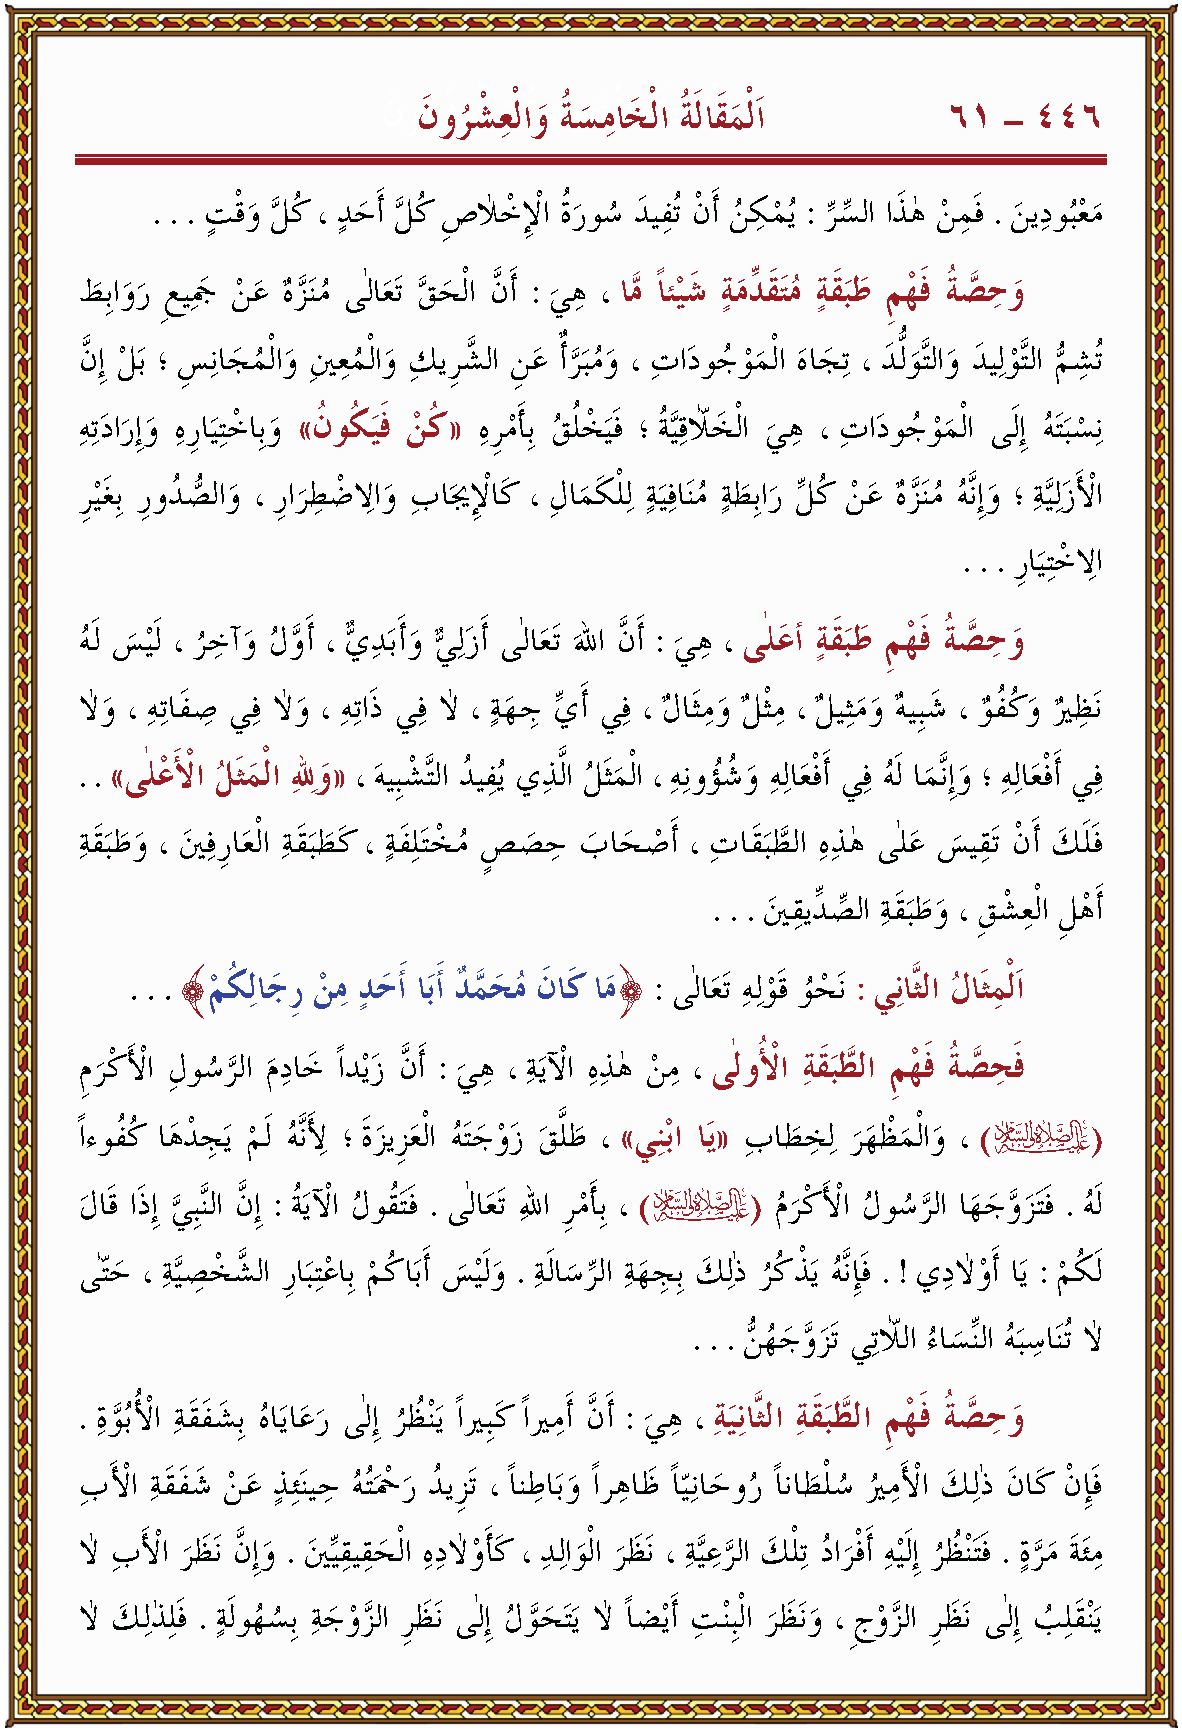 ٤٤٦ – ٦١ اَلْمَقَالَةُ الْخَامِسَةُ وَالْعِشْرُونَ
مَعْبُودِينَ . فَمِنْ هٰذَا السِّرِّ : يُمْكِنُ أَنْ تُفِيدَ سُورَةُ الْإِخْلاٰصِ كُلَّ أَحَدٍ ، كُلَّ وَقْتٍ . . .
وَحِصَّةُ فَهْمِ طَبَقَةٍ مُتَقَدِّمَةٍ شَيْئاً مَّا ، هِيَ : أَنَّ الْحَقَّ تَعَالٰى مُنَزَّهٌ عَنْ جَمِيعِ رَوَابِطَ
تُشِمُّ التَّوْلِيدَ وَالتَّوَلُّدَ ، تِجَاهَ الْمَوْجُودَاتِ ، وَمُبَرَّأٌ عَنِ الشَّرِيكِ وَالْمُعِينِ وَالْمُجَانِسِ ؛ بَلْ إِنَّ
نِسْبَتَهُ إِلَى الْمَوْجُودَاتِ ، هِيَ الْخَلاّٰقِيَّةُ ؛ فَيَخْلُقُ بِأَمْرِهِ «كُنْ فَيَكُونُ» وَبِاخْتِيَارِهِ وَإِرَادَتِهِ
الْأَزَلِيَّةِ ؛ وَإِنَّهُ مُنَزَّهٌ عَنْ كُلِّ رَابِطَةٍ مُنَافِيَةٍ لِلْكَمَالِ ، كَالْإِيجَابِ وَالِاضْطِرَارِ ، وَالصُّدُورِ بِغَيْرِ
الِاخْتِيَارِ . . .
وَحِصَّةُ فَهْمِ طَبَقَةٍ أَعلٰى ، هِيَ : أَنَّ اللهَ تَعَالٰى أَزَلِيٌّ وَأَبَدِيٌّ ، أَوَّلُ وَآخِرُ ، لَيْسَ لَهُ
نَظِيرٌ وَكُفُوٌ ، شَبِيهٌ وَمَثِيلٌ ، مِثْلٌ وَمِثَالٌ ، فِي أَيِّ جِهَةٍ ، لاٰ فِي ذَاتِهِ ، وَلاٰ فِي صِفَاتِهِ ، وَلاٰ
فِي أَفْعَالِهِ ؛ وَإِنَّمَا لَهُ فِي أَفْعَالِهِ وَشُؤُونِهِ ، الْمَثَلُ الَّذِي يُفِيدُ التَّشْبِيهَ ، «وَلِلهِ الْمَثَلُ الْأَعْلٰى» . .
فَلَكَ أَنْ تَقِيسَ عَلٰى هٰذِهِ الطَّبَقَاتِ ، أَصْحَابَ حِصَصٍ مُخْتَلِفَةٍ ، كَطَبَقَةِ الْعَارِفِينَ ، وَطَبَقَةِ
أَهْلِ الْعِشْقِ ، وَطَبَقَةِ الصِّدِّيقِينَ . . .
اَلْمِثَالُ الثَّانِي : نَحْوُ قَوْلِهِ تَعَالٰى : ﴿مَا كَانَ مُحَمَّدٌ أَبَا أَحَدٍ مِنْ رِجَالِكُمْ﴾ . . .
فَحِصَّةُ فَهْمِ الطَّبَقَةِ الْأُولٰى ، مِنْ هٰذِهِ الْآيَةِ ، هِيَ : أَنَّ زَيْداً خَادِمَ الرَّسُولِ الْأَكْرَمِ
(عَلَيْهِ الصَّلَاةُ وَالسَّلَامُ) ، وَالْمَظْهَرَ لِخِطَابِ «يَا ابْنِي» ، طَلَّقَ زَوْجَتَهُ الْعَزِيزَةَ ؛ لِأَنَّهُ لَمْ يَجِدْهَا كُفُوءاً
لَهُ . فَتَزَوَّجَهَا الرَّسُولُ الْأَكْرَمُ (عَلَيْهِ الصَّلَاةُ وَالسَّلَامُ) ، بِأَمْرِ اللهِ تَعَالٰى . فَتَقُولُ الْآيَةُ : إِنَّ النَّبِيَّ إِذَا قَالَ
لَكُمْ : يَا أَوْلاٰدِي ! . فَإِنَّهُ يَذْكُرُ ذٰلِكَ بِجِهَةِ الرِّسَالَةِ . وَلَيْسَ أَبَاكُمْ بِاعْتِبَارِ الشَّخْصِيَّةِ ، حَتّٰى
لاٰ تُنَاسِبَهُ النِّسَاءُ اللاّٰتِي تَزَوَّجَهُنَّ . . .
وَحِصَّةُ فَهْمِ الطَّبَقَةِ الثَّانِيَةِ ، هِيَ : أَنَّ أَمِيراً كَبِيراً يَنْظُرُ إِلٰى رَعَايَاهُ بِشَفَقَةِ الْأُبُوَّةِ .
فَإِنْ كَانَ ذٰلِكَ الْأَمِيرُ سُلْطَاناً رُوحَانِيّاً ظَاهِراً وَبَاطِناً ، تَزِيدُ رَحْمَتُهُ حِينَئِذٍ عَنْ شَفَقَةِ الْأَبِ
مِئَةَ مَرَّةٍ . فَتَنْظُرُ إِلَيْهِ أَفْرَادُ تِلْكَ الرَّعِيَّةِ ، نَظَرَ الْوَالِدِ ، كَأَوْلاٰدِهِ الْحَقِيقِيِّينَ . وَإِنَّ نَظَرَ الْأَبِ لاٰ
يَنْقَلِبُ إِلٰى نَظَرِ الزَّوْجِ ، وَنَظَرَ الْبِنْتِ أَيْضاً لاٰ يَتَحَوَّلُ إِلٰى نَظَرِ الزَّوْجَةِ بِسُهُولَةٍ . فَلِذٰلِكَ لاٰ